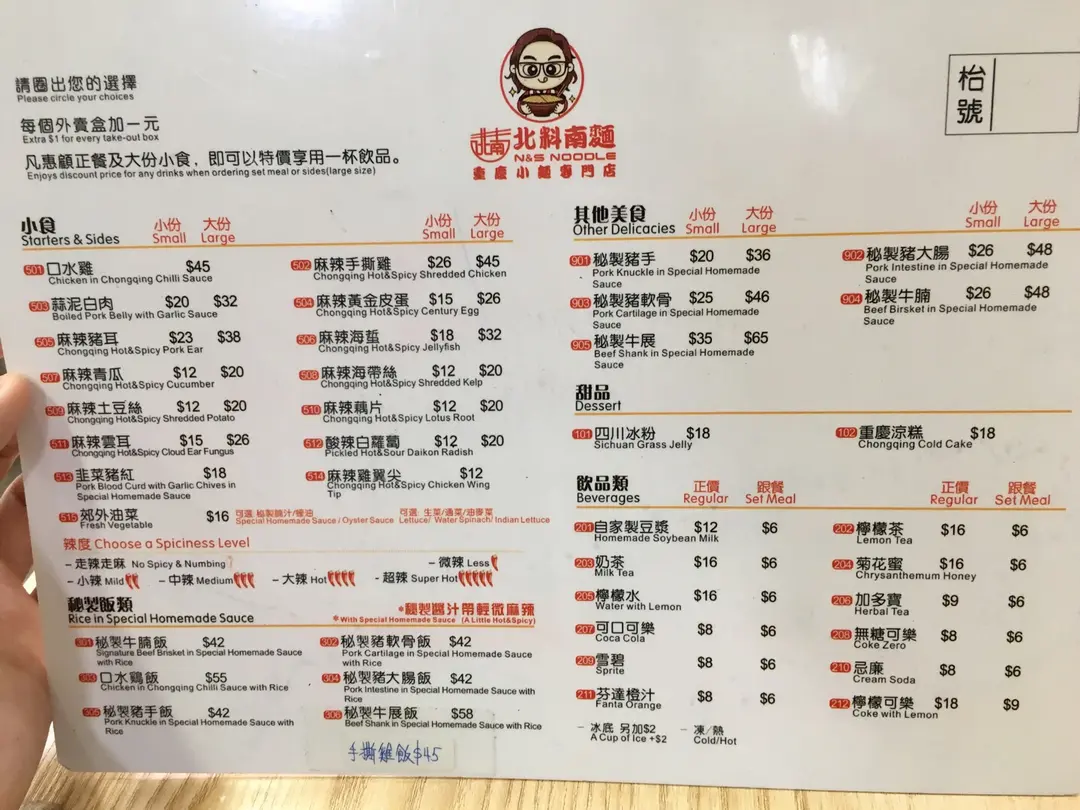 請圈出您的選擇
Please circle your choices
每個外賣盒加一元
Extra $1 for every take-out box
凡惠顧正餐及大份小食，即可以特價享用一杯飲品。
Enjoys discount price for any drinks when ordering set meal or sides(large size)
北料南麵
N&S NOODLE
重慶小麵專門店
枱號
小食 小份 大份 小份 大份
Starters & Sides Small Large Small Large
501 口水雞 $45
Chicken in Chongqing Chilli Sauce
502 麻辣手撕雞 $26 $45
Chongqing Hot&Spicy Shredded Chicken
503 蒜泥白肉 $20 $32
Boiled Pork Belly with Garlic Sauce
504 麻辣黃金皮蛋 $15 $26
Chongqing Hot&Spicy Century Egg
505 麻辣豬耳 $23 $38
Chongqing Hot&Spicy Pork Ear
506 麻辣海蜇 $18 $32
Chongqing Hot&Spicy Jellyfish
507 麻辣青瓜 $12 $20
Chongqing Hot&Spicy Cucumber
508 麻辣海帶絲 $12 $20
Chongqing Hot&Spicy Shredded Kelp
509 麻辣土豆絲 $12 $20
Chongqing Hot&Spicy Shredded Potato
510 麻辣藕片 $12 $20
Chongqing Hot&Spicy Lotus Root
511 麻辣雲耳 $15 $26
Chongqing Hot&Spicy Cloud Ear Fungus
512 酸辣白蘿蔔 $12 $20
Pickled Hot&Sour Daikon Radish
513 韭菜豬紅 $18
Pork Blood Curd with Garlic Chives in
Special Homemade Sauce
514 麻辣雞翼尖 $12
Chongqing Hot&Spicy Chicken Wing
Tip
515 郊外油菜 $16 可選:秘製醬汁/蠔油 可選:生菜/通菜/油麥菜
Fresh Vegetable Special Homemade Sauce / Oyster Sauce Lettuce/ Water Spinach/ Indian Lettuce
辣度 Choose a Spiciness Level
– 走辣走麻 No Spicy & Numbing – 微辣 Less
– 小辣 Mild – 中辣 Medium – 大辣 Hot – 超辣 Super Hot
秘製飯類 *秘製醬汁帶輕微麻辣
Rice in Special Homemade Sauce *With Special Homemade Sauce (A Little Hot&Spicy)
301 秘製牛腩飯 $42
Signature Beef Brisket in Special Homemade Sauce
with Rice
302 秘製豬軟骨飯 $42
Pork Cartilage in Special Homemade Sauce
with Rice
303 口水鷄飯 $55
Chicken in Chongqing Chilli Sauce with Rice
304 秘製豬大腸飯 $42
Pork Intestine in Special Homemade Sauce with
Rice
305 秘製豬手飯 $42
Pork Knuckle in Special Homemade Sauce with
Rice
306 秘製牛展飯 $58
Beef Shank in Special Homemade Sauce with Rice
手撕雞飯$45
其他美食 小份 大份 小份 大份
Other Delicacies Small Large Small Large
901 秘製豬手 $20 $36
Pork Knuckle in Special Homemade
Sauce
902 秘製豬大腸 $26 $48
Pork Intestine in Special Homemade
Sauce
903 秘製豬軟骨 $25 $46
Pork Cartilage in Special Homemade
Sauce
904 秘製牛腩 $26 $48
Beef Birsket in Special Homemade
Sauce
905 秘製牛展 $35 $65
Beef Shank in Special Homemade
Sauce
甜品
Dessert
101 四川冰粉 $18
Sichuan Grass Jelly
102 重慶涼糕 $18
Chongqing Cold Cake
飲品類 正價 跟餐 正價 跟餐
Beverages Regular Set Meal Regular Set Meal
201 自家製豆漿 $12 $6
Homemade Soybean Milk
202 檸檬茶 $16 $6
Lemon Tea
203 奶茶 $16 $6
Milk Tea
204 菊花蜜 $16 $6
Chrysanthemum Honey
205 檸檬水 $16 $6
Water with Lemon
206 加多寶 $9 $6
Herbal Tea
207 可口可樂 $8 $6
Coca Cola
208 無糖可樂 $8 $6
Coke Zero
209 雪碧 $8 $6
Sprite
210 忌廉 $8 $6
Cream Soda
211 芬達橙汁 $8 $6
Fanta Orange
212 檸檬可樂 $18 $9
Coke with Lemon
– 冰底 另加$2 – 凍/熱
A Cup of Ice +$2 Cold/Hot